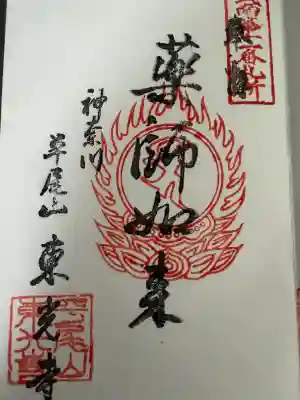 奉拝
薬師如来
神奈川
草尾山 東光寺